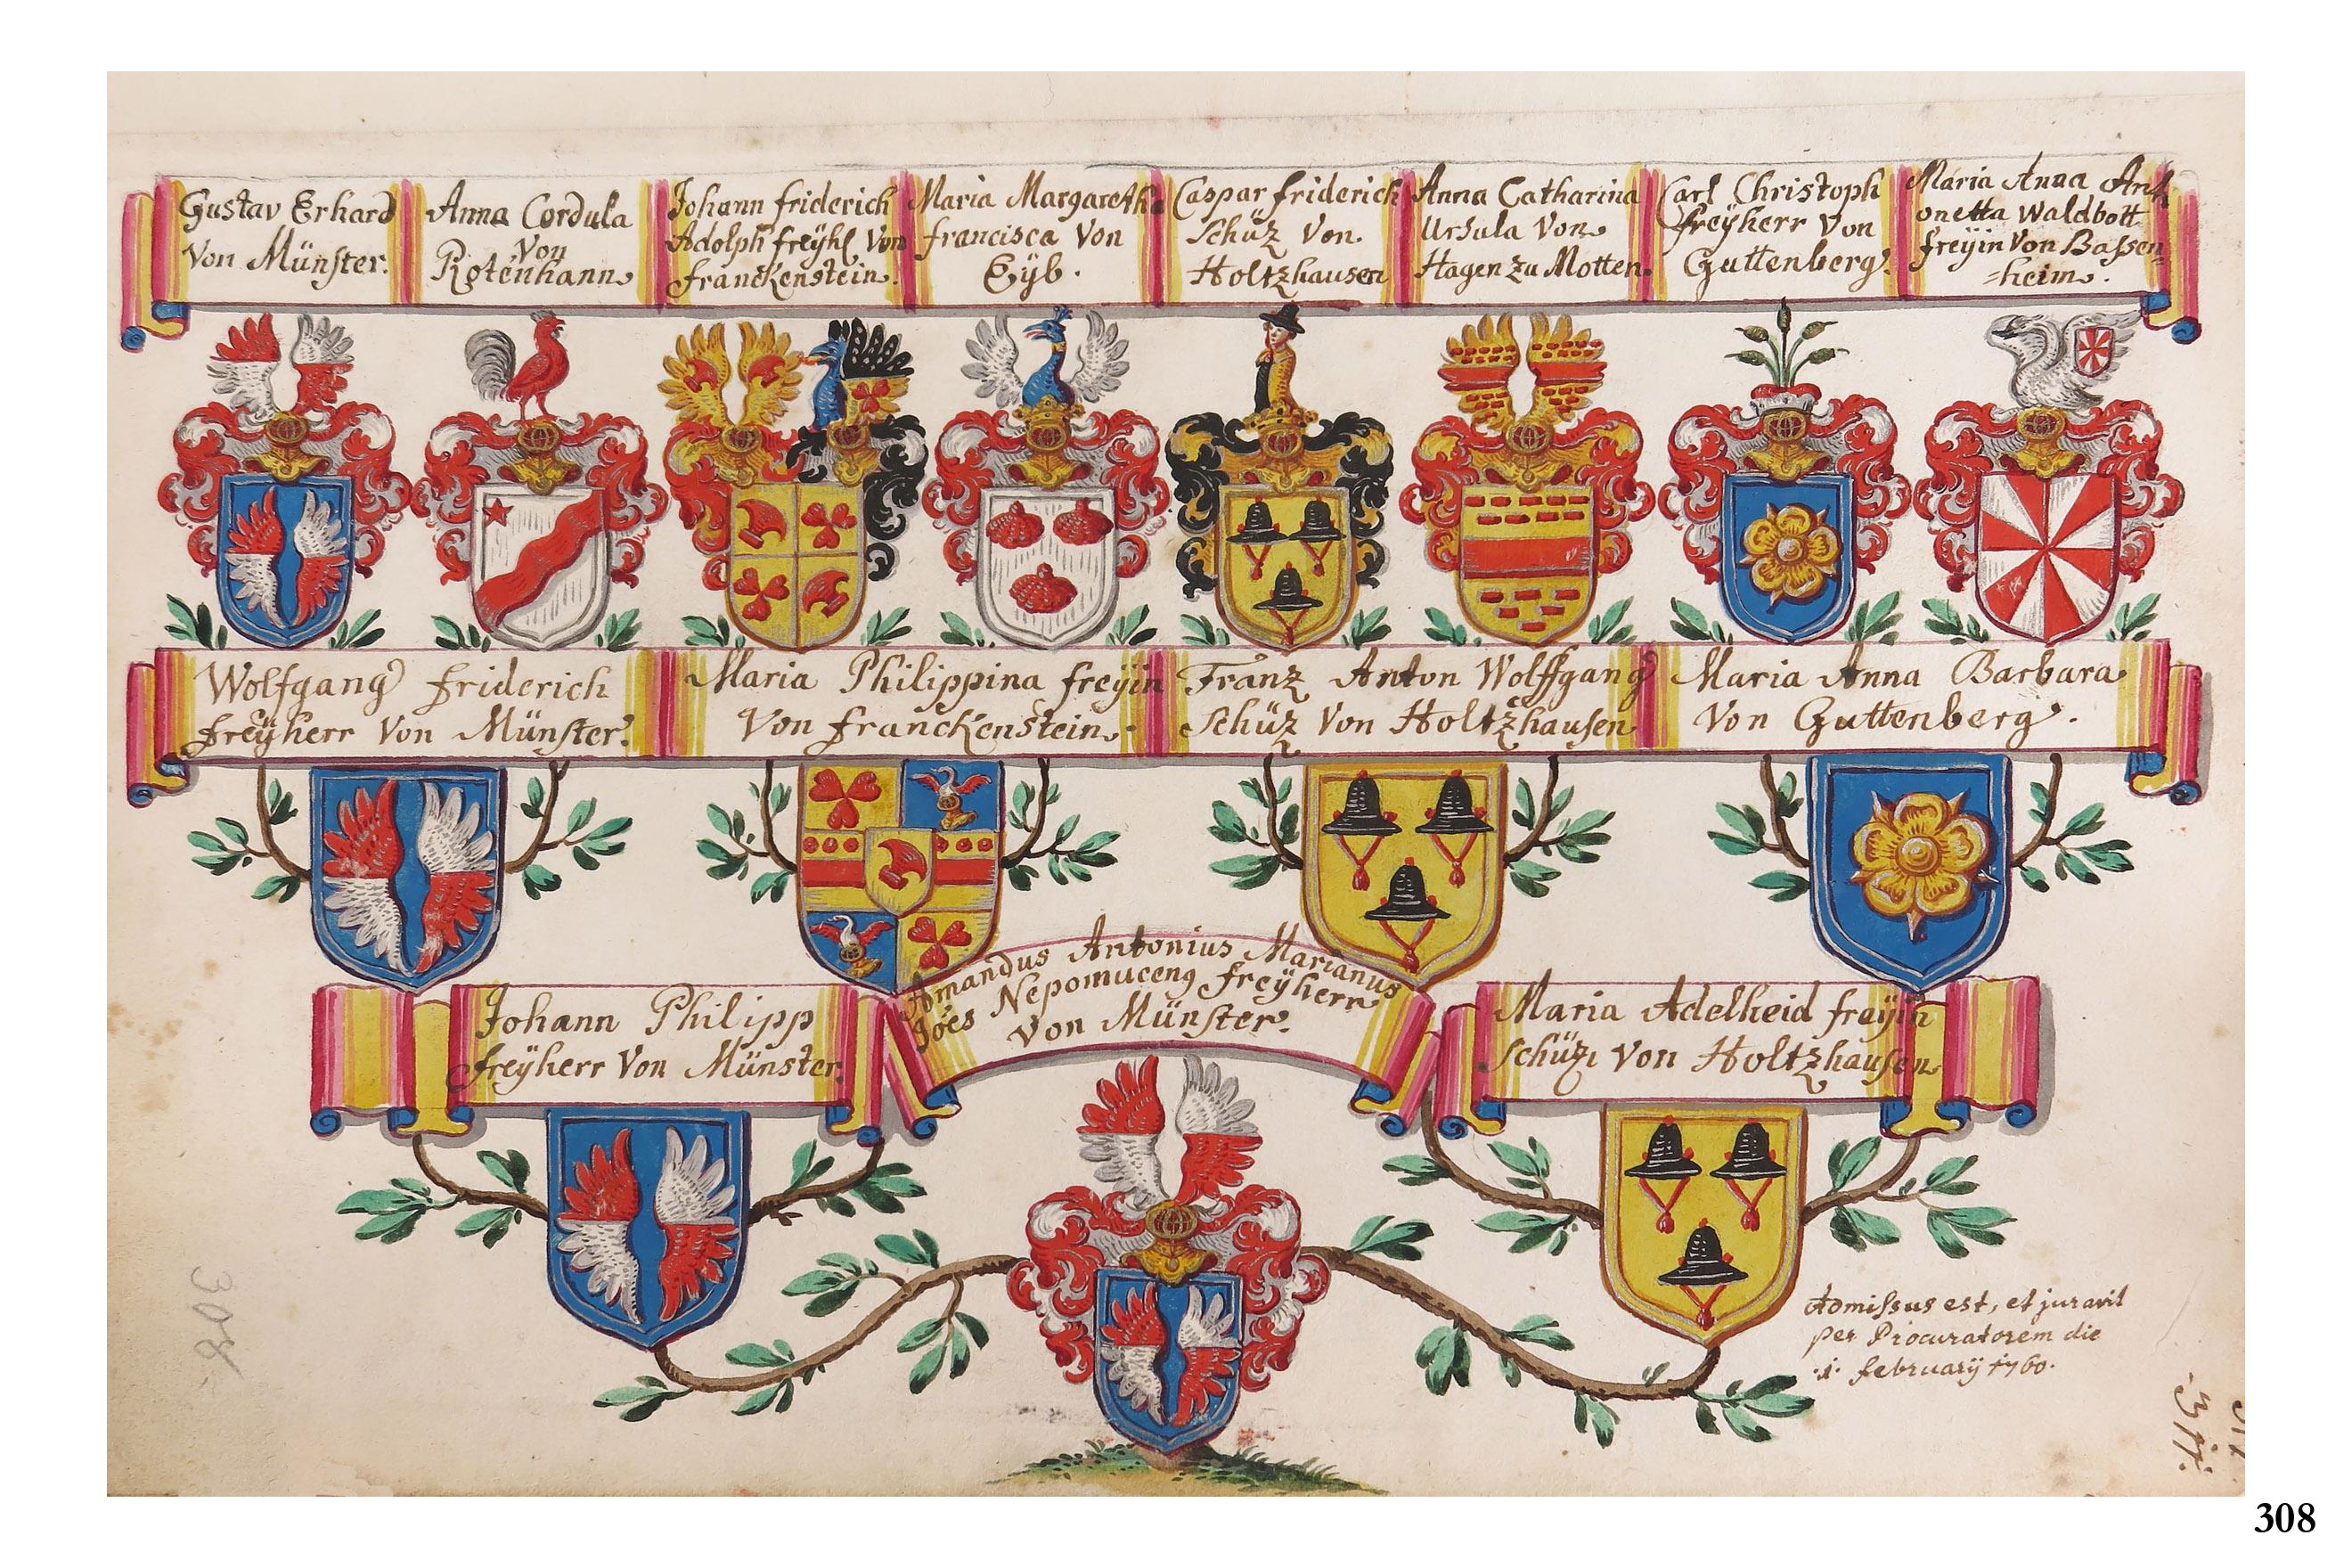 Gustav Erhard
Von Münster.
Anna Cordula
Von
Rotenhann
Johann friderich
Adolph freyhl Von
franckenstein.
Maria Margaretha
francisca Von
Eÿb.
Caspar friderich
Schüz Von
Holtzhausen
Anna Catharina
Ursula Von
Hagen zu Motten.
Carl Christoph
freÿherr Von
Guttenberg.
Maria Anna Ant
onetta Waldbott
freÿin Von Bassen=
=heim.
Wolfgang friderich
freÿherr Von Münster.
Maria Philippina freÿin
Von franckenstein.
Franz Anton Wolffgang
Schüz Von Holtzhausen
Maria Anna Barbara
Von Guttenberg.
Johann Philipp
freÿherr Von Münster.
Amandus Antonius Marianus
Jöes Nepomuceng freÿherr
Von Münster.
Maria Adelheid freÿin
Schüz Von Holtzhausen
Admissus est, et juravit
per Procuratorem die
.1. februarij 1760.
308
308